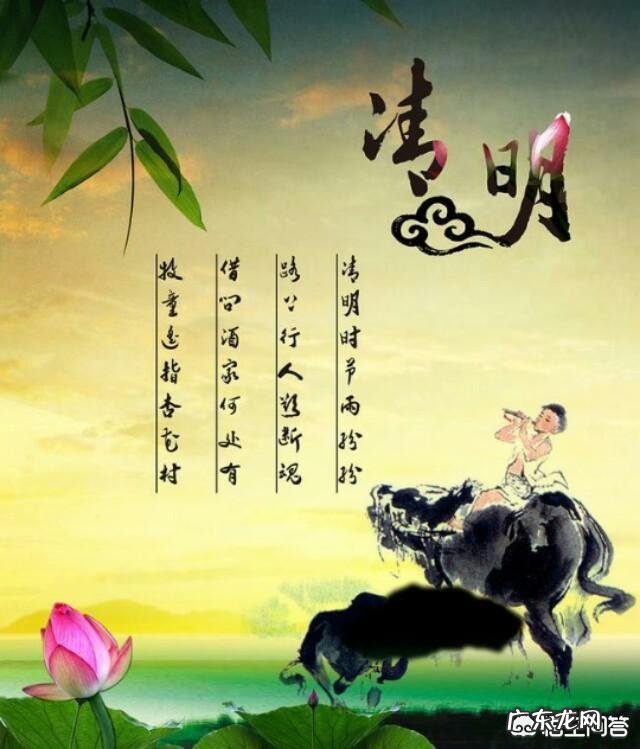 清明
清明时节雨纷纷
路上行人欲断魂
借问酒家何处有
牧童遥指杏花村
广东龙网